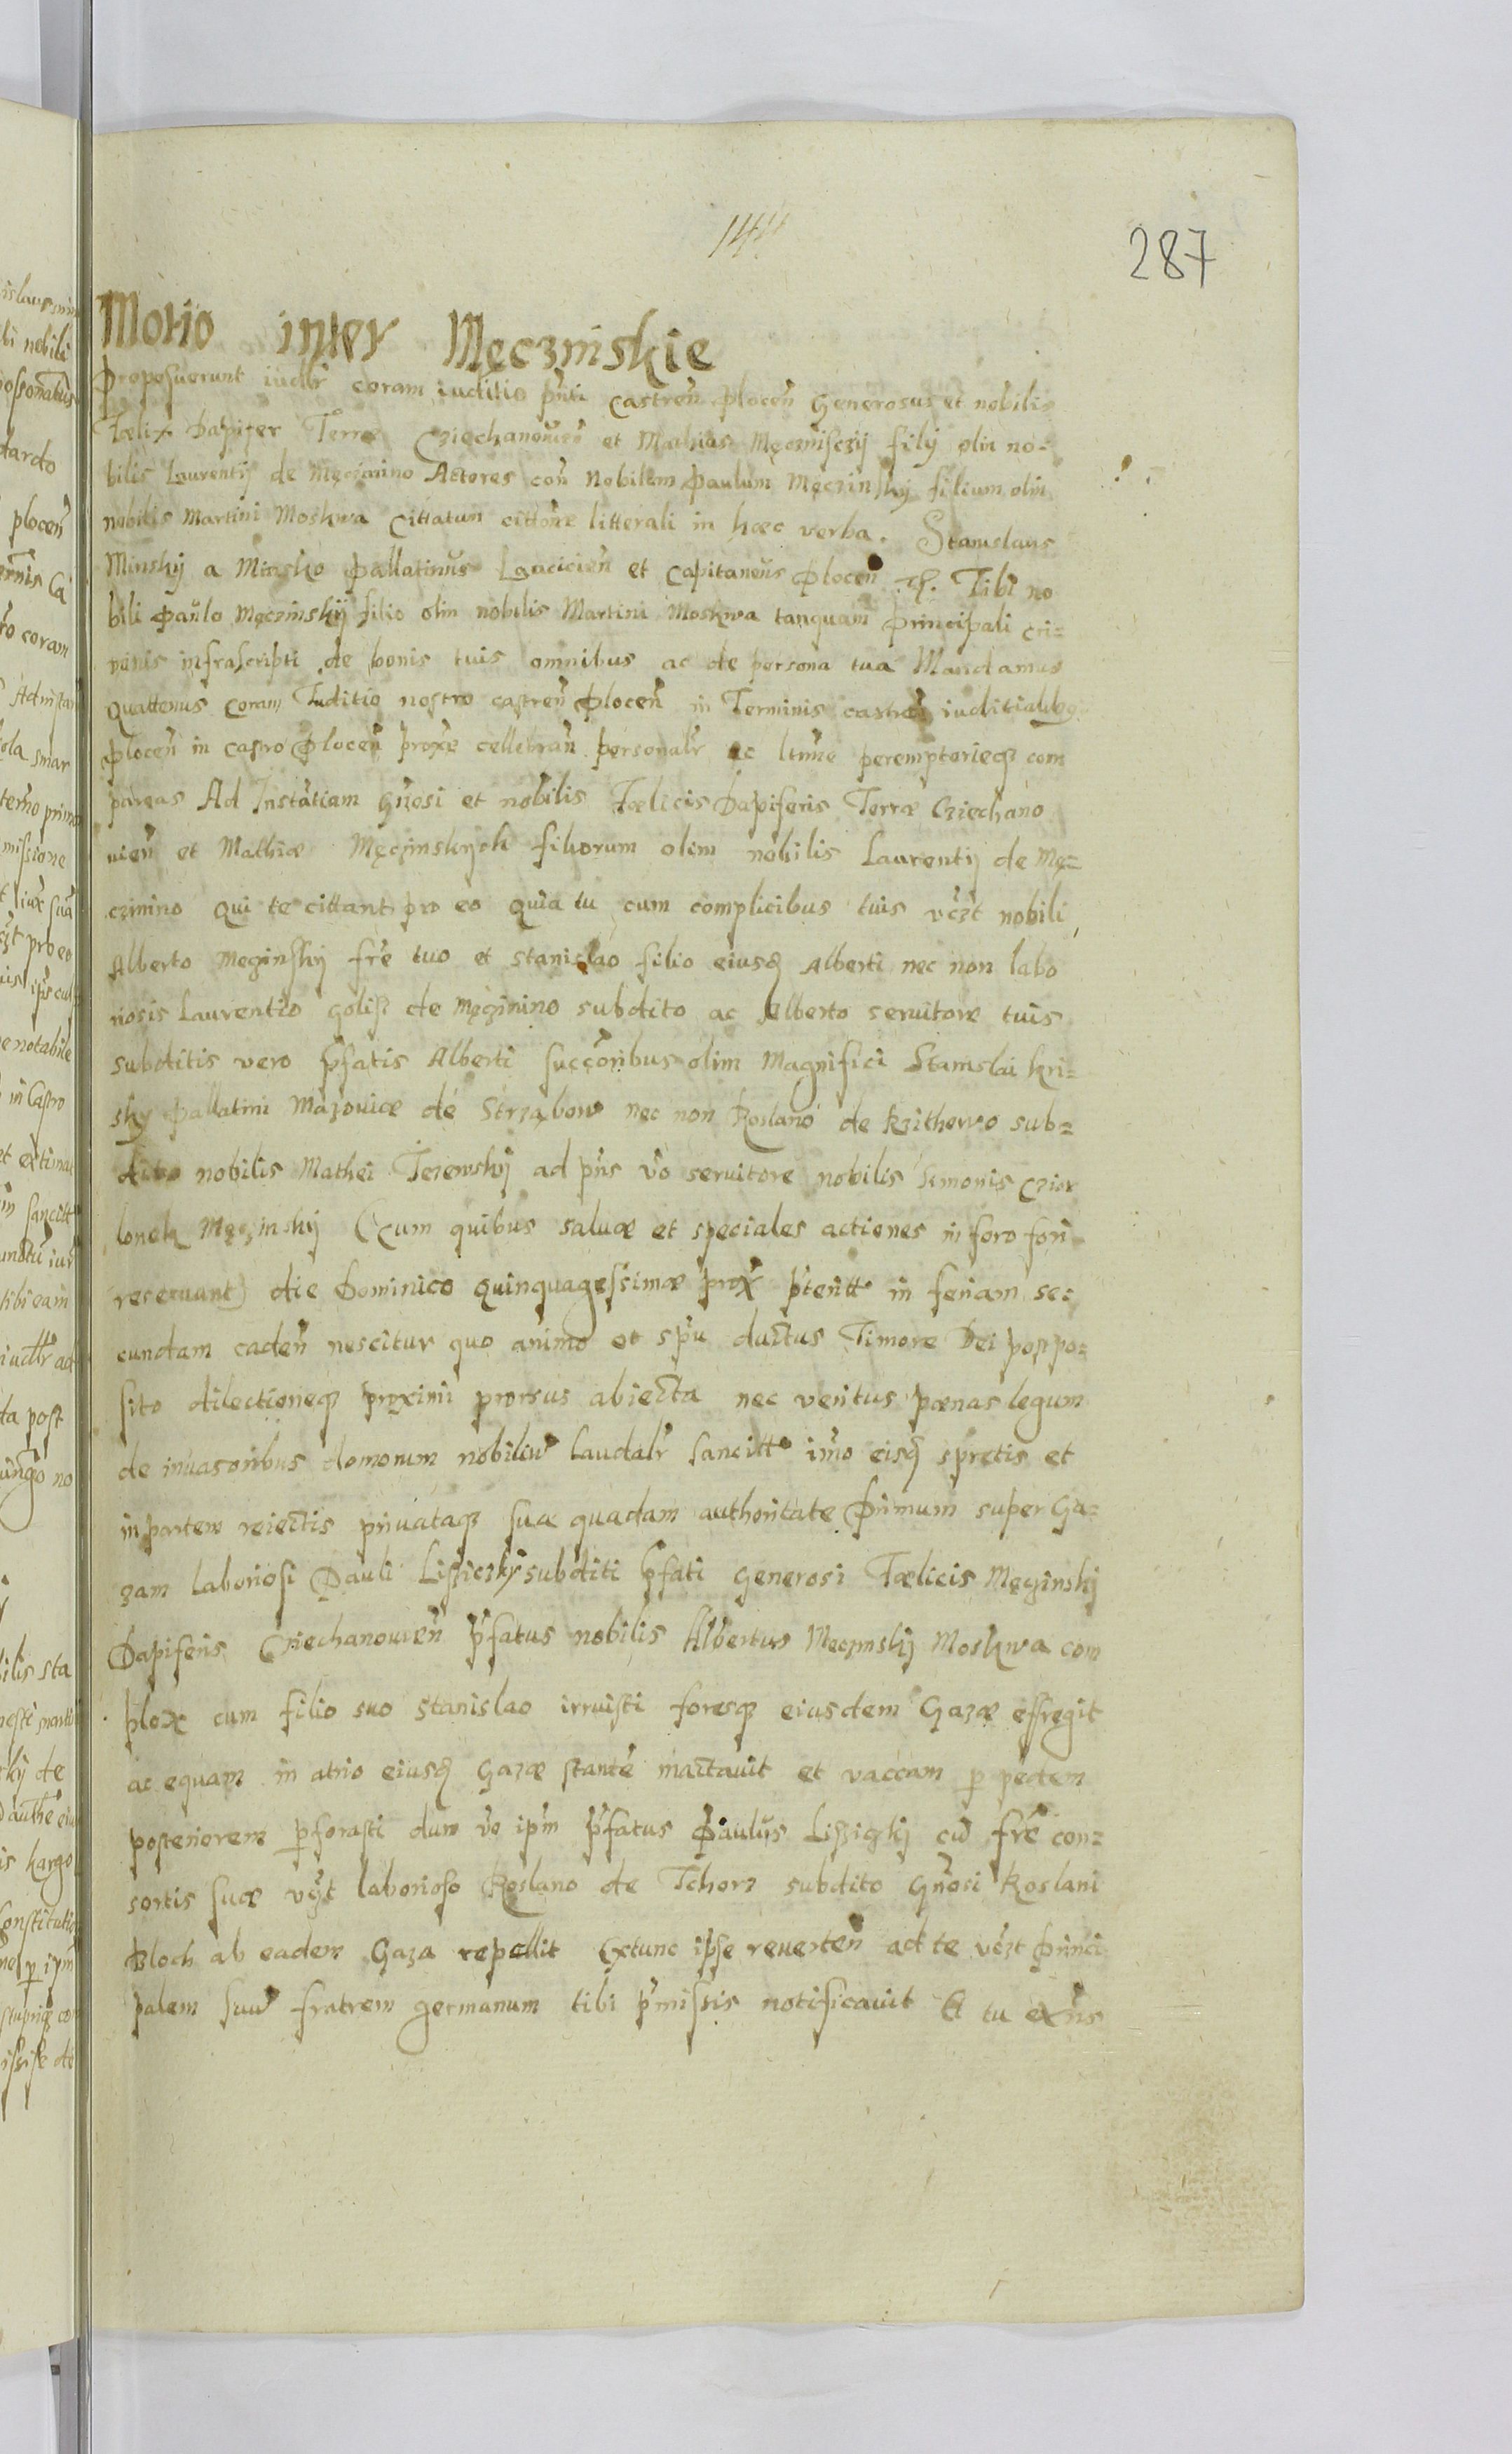 144
287
Motio inter Męcznskie
Proposuerunt iudlr coram iuditio pñti castreñPloceñ Generosus et nobilis
Fælix Dapifer Terræ Cziechanouieñ et Mathias Męcznisczij filij olim no=
bilis Laurentij de Męczinino Actores coñ Nobilem Paulum Męczinskij filium olim
nobilis Martini Moskwa Cittatum cittoñe litterali in hæc verba. Stanislaus
Minskij a Minsko Pallatinus Lgacicieñ et Capitaneus Ploceñ Tibi no
bili Paulo Męczinskij filio olim nobilis Martini Moskwa tanquam Principali cri=
minis infrascripti de bonis tuis omnibus ac de persona tua Mandamus
Quattenus Coram Iuditio nostro castreñ Ploceñ in Terminis castreñ iuditialibus
Ploceñ in castro Ploceñ proxe cellebrañ personalr ac ltime peremptorieqz com
pareas Ad Instãtiam Gñosi et nobilis Fælicis Dapiferis Terræ Cziechano
uieñ et Mathiæ Męczinskijch filiorum olim nobilis Laurentij de Mę=
czinino Qui te cittant pro eo quia tu cum complicibus tuis vczt nobili
Alberto Męginskij fr̃e tuo et Stanislao filio eiusd Alberti nec non labo
riosis Laurentio golisz de Męginino subdito ac Alberto seruitore tuis
subditis vero p̃fatis Alberti succoribus olim Magnifici Stanislai kri=
sky Pallatini Mazouiæ de Strząbow nec non Roslano de Krzithewo sub=
dito nobilis Mathei Jezewskij ad p̃ns vo seruitore nobilis Simonis Czior
lonek Męczinskij (Cum quibus saluæ et speciales actiones in foro fori
reseruant) die Dominico Quinquagessimæ prox pteritt in feriam sec
cundam cadeñ nescitur quo animo et sp̃u ductus Timore Dei postpo=
sito dilectioneqz proximi prorsus abiecta nec veritus pœnas legum
de inuasoribus domorum nobiliũ laudalr sancitt imo eisd spretis et
in partem reiectis priuataqz sua quadam authoritate Primum super Ga=
zam laboriosi Pauli Liszickij subditi p̃fati Generosi Fælicis Męginskij
Dapiferis Cziechanouieñ p̃fatus nobilis Albertus Męcznskij Moskwa com
plex cum filio suo Stanislao irruisti foresqz eiusdem Gazæ effregit
ac equam in atrio eiusd Gazæ stante mactauit et vaccam p pedem
posteriorem pforasti dum vo ip̃m p̃fatus Paulus Liszigkij cũ fr̃e con=
sortis suæ vczt laborioso Roslano de Tchorz subdito Gñosi Roslani
Bloch ab eadem Gaza repellit Extunc ipse reuerteñ ad te vczt Princi
palem suũ fratrem germanum tibi p̃missis notificauit Et tu exñs